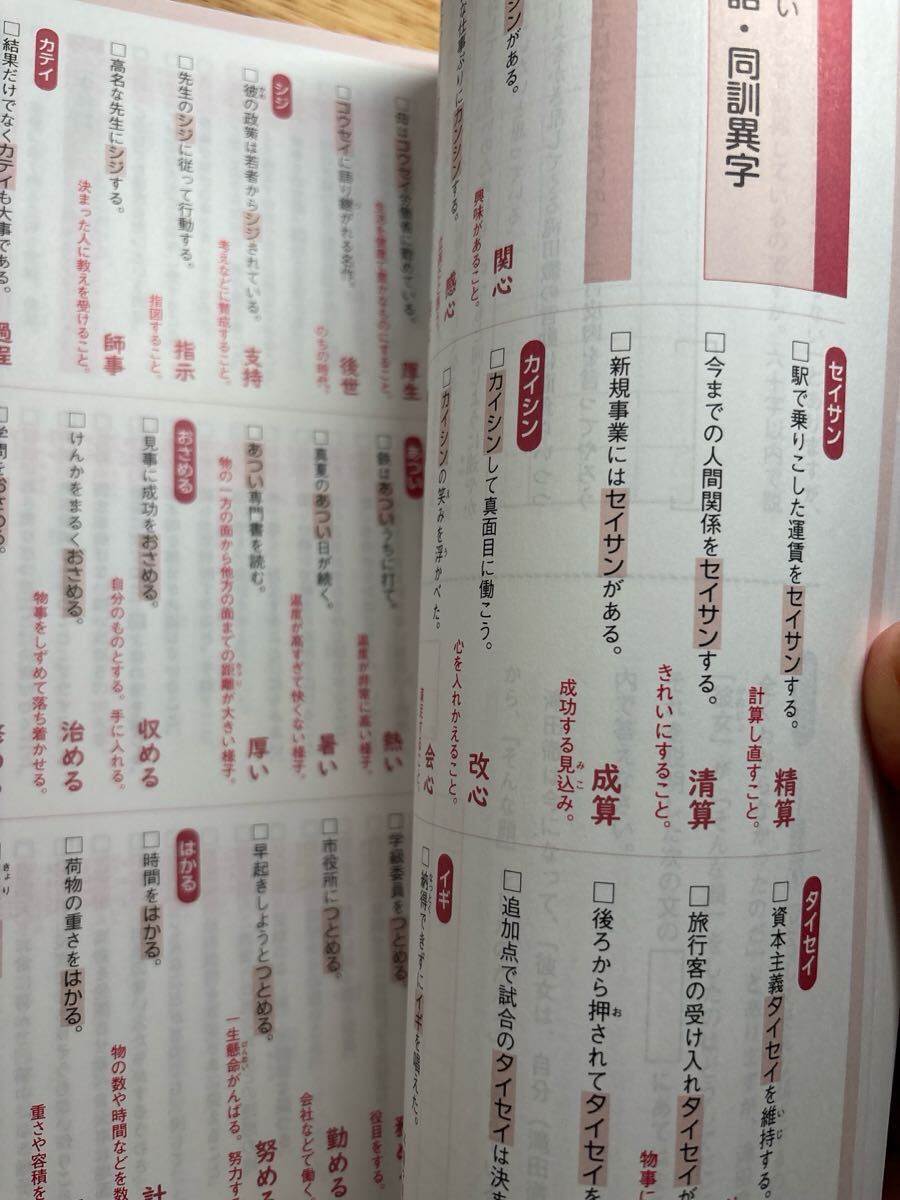 い
語・同訓異字
セイサン
□駅で乗りこした運賃をセイサンする。
計算し直すこと。
精算
□今までの人間関係をセイサンする。
きれいにすること。
清算
□新規事業にはセイサンがある。
成功する見込み。
みこ
成算
カイシン
□カイシンして真面目に働こう。
心を入れかえること。
改心
□カイシンの笑みを浮かべた。
え
う
会心
シンがある。
興味があること。
関心
な仕事ぶりにカンシンする。
感心
タイセイ
□資本主義タイセイを維持する
いじ
□旅行客の受け入れタイセイが
物事に
□後ろから押されてタイセイを
お
□追加点で試合のタイセイは決ま
イギ
□納得できずにイギを唱えた。
なっとく
厚生
□コウセイに語り継がれる名作。
のちの時代。
後世
シジ
□彼の政策は若者からシジされている。
かれ
考えなどに賛成すること。
支持
□先生のシジに従って行動する。
指図すること。
指示
□高名な先生にシジする。
決まった人に教えを受けること。
師事
カテイ
□結果だけでなくカテイも大事である。
過程
あつい
□鉄はあついうちに打て。
温度が非常に高い様子。
熱い
□真夏のあつい日が続く。
温度が高すぎて快くない様子。
暑い
□あつい専門書を読む。
物の一方の面から他方の面までの距離が大きい様子。
きょり
厚い
おさめる
□見事に成功をおさめる。
自分のものとする。手に入れる。
収める
□けんかをまるくおさめる。
物事をしずめて落ち着かせる。
治める
学問をおさめる。
□学級委員をつとめる。
役目をする。
□市役所につとめる。
会社などで働く。
勤める
□早起きしようとつとめる。
一生懸命がんばる。努力す
けんめい
努める
はかる
□時間をはかる。
物の数や時間などを数
計
□荷物の重さをはかる。
重さや容積を
きょり